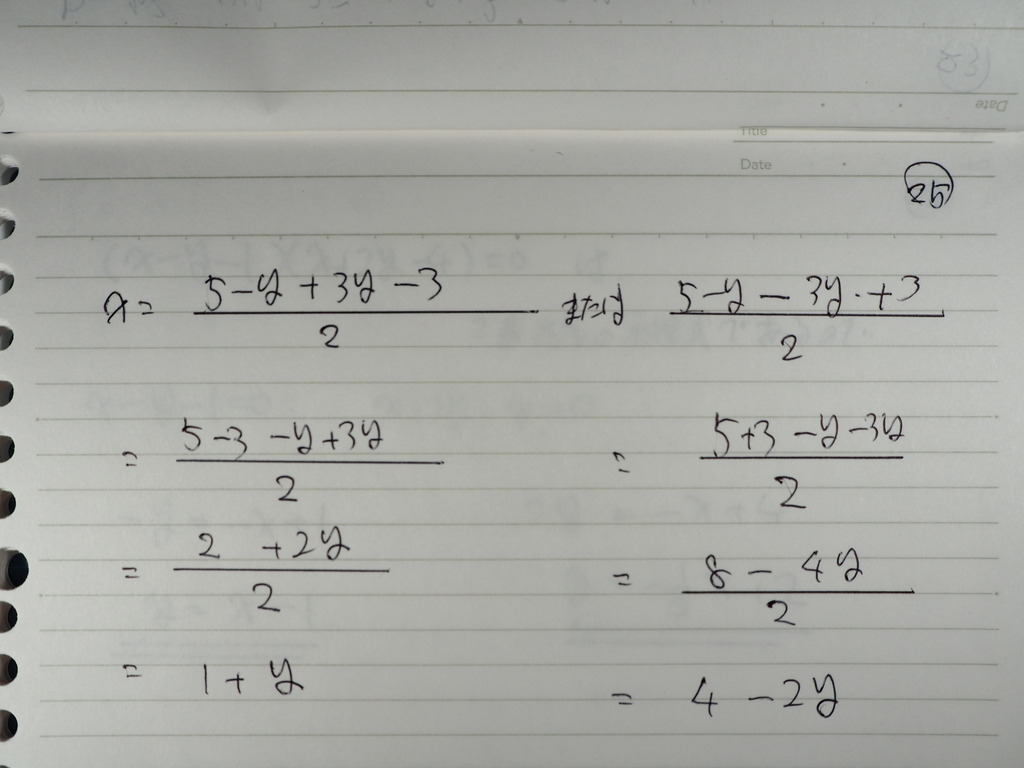 Title
Date
25
x = (5-y+3y-3)/2 または (5-y-3y+3)/2
= (5-3-y+3y)/2 = (5+3-y-3y)/2
= (2+2y)/2 = (8-4y)/2
= 1+y = 4-2y